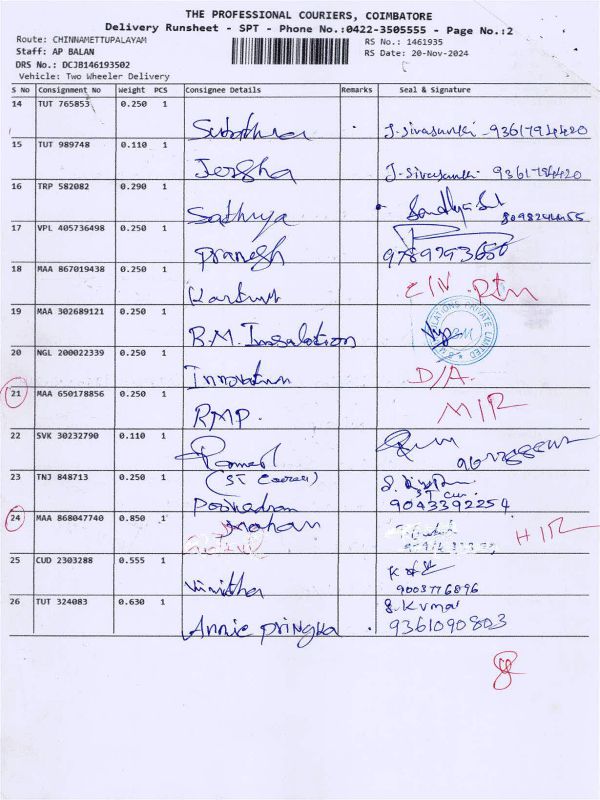 THE PROFESSIONAL COURIERS, COIMBATORE
Delivery Runsheet - SPT - Phone No.:0422-3505555 - Page No.:2
Route: CHINNAMETTUPALAYAM RS No.: 1461935
Staff: AP BALAN RS Date: 20-Nov-2024
DRS No.: DCJ8146193502
Vehicle: Two Wheeler Delivery
S No Consignment No Weight PCS Consignee Details Remarks Seal & Signature
14 TUT 765853 0.250 1
J-Sivasankari - 9361794420
15 TUT 989748 0.110 1
Jersha J-Sivasankari 9361794420
16 TRP 582082 0.290 1
Sathiya
17 VPL 405736498 0.250 1
Pranesh 9789793680
18 MAA 867019438 0.250 1
19 MAA 302689121 0.250 1
R.M. Insalation
20 NGL 200022339 0.250 1
D/A.
21 MAA 650178856 0.250 1
RMP. M/R
22 SVK 30232790 0.110 1
Ramesh
(ST Courier)
23 TNJ 848713 0.250 1
ST Cur.
9043392254
24 MAA 868047740 0.850 1
Mohan H/R
25 CUD 2303288 0.555 1
Vinitha 9003776896
26 TUT 324083 0.630 1
S. Kumar
Annie Pringka 9361090803